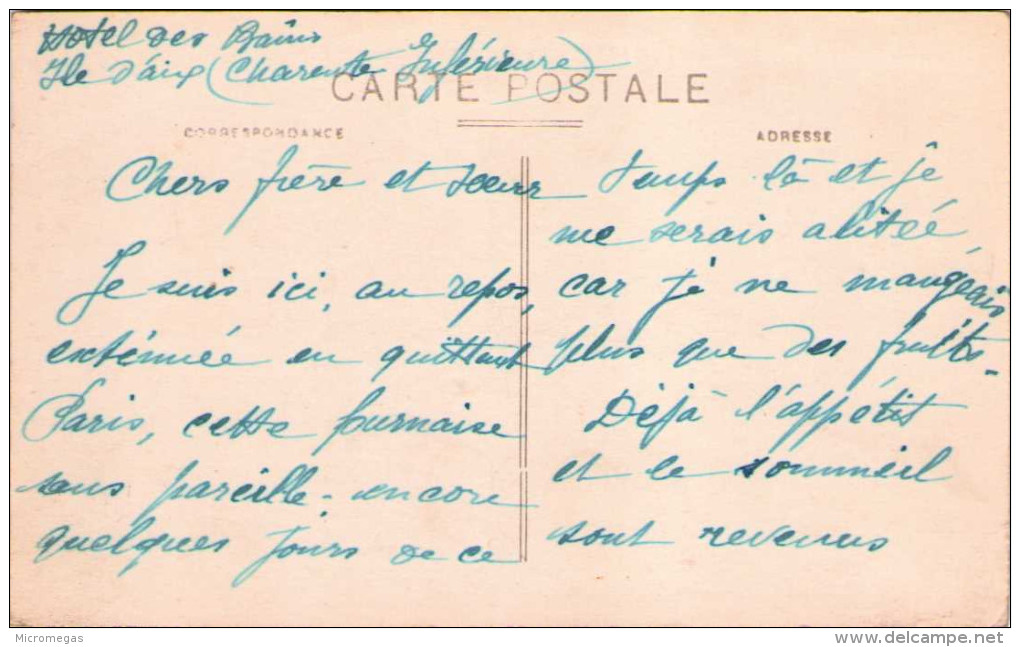 Hotel des Bains
Ile d'aix (Charente Inférieure)
CARTE POSTALE
CORRESPONDANCE
ADRESSE
Chers frère et soeur
Je suis ici, au repos,
exténuée en quittant
Paris, cette fournaise
sans pareille - encore
quelques jours de ce
temps là et je
me serais alitée,
car je ne mangeais
plus que des fruits -
Déjà l'appétit
et le sommeil
sont revenus
Micromegas
www.delcampe.net